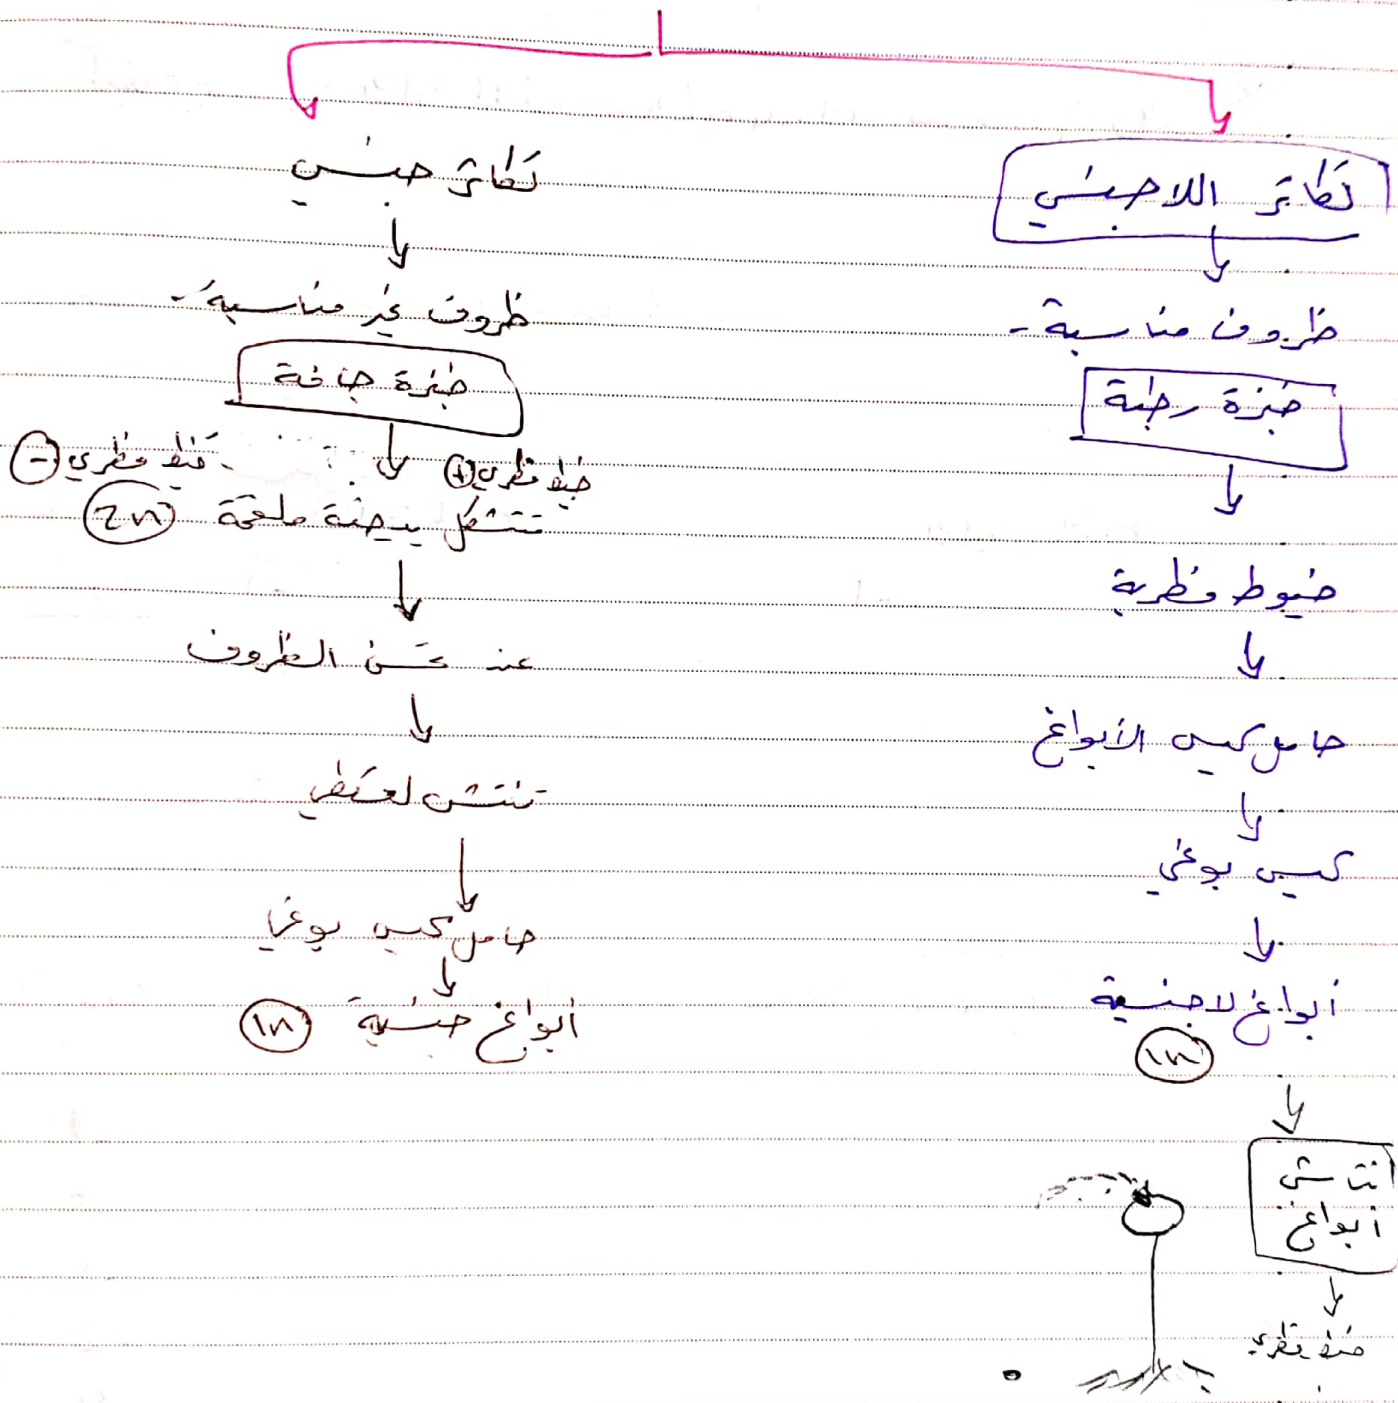 تكاثر اللاجنسي
ظروف مناسبة -
خبزة رطبة
خيوط فطرية
حامل كيس الأبواغ
كيس بوغي
أبواغ لاجنسية
1n
انتاش
أبواغ
خيط فطري
تكاثر جنسي
ظروف غير مناسبة -
خبزة جافة
خيط فطري + خيط فطري -
تتشكل بيضة ملقحة 2n
عند تحسن الظروف
تنتش لتعطي
حامل كيس بوغي
أبواغ جنسية 1n